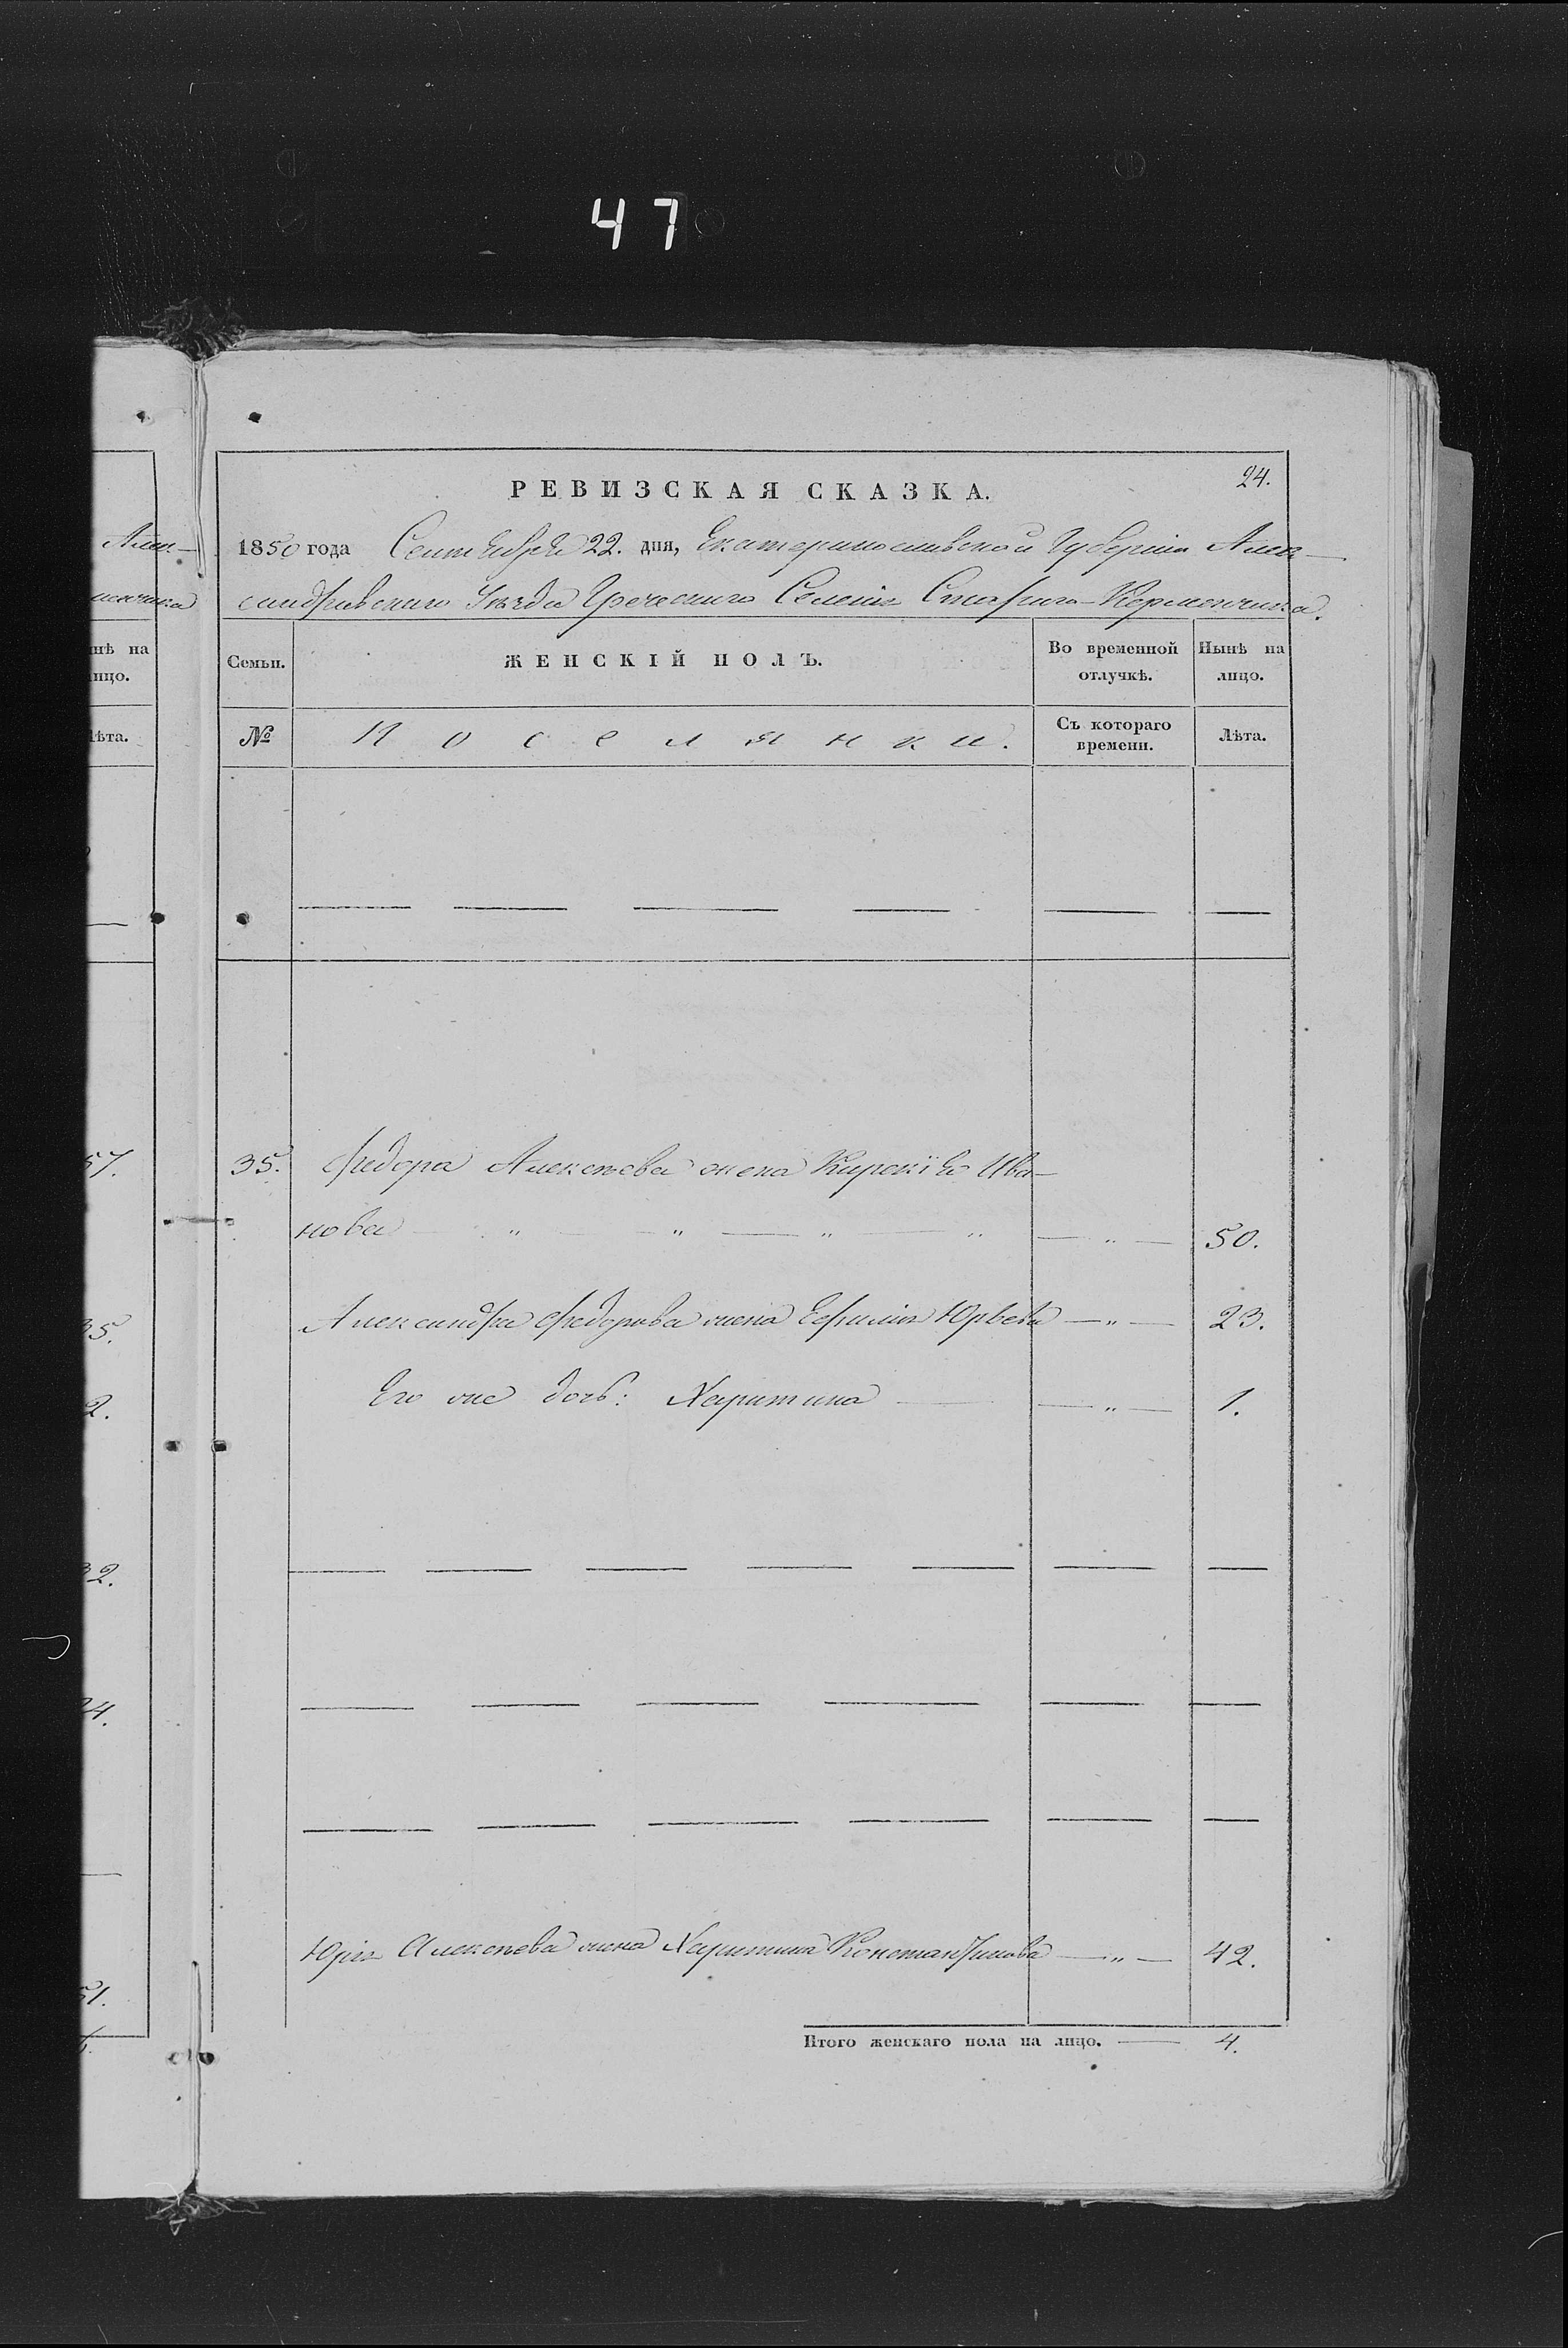 47
24.
РЕВИЗСКАЯ СКАЗКА.
1850 года Сентября 22. дня, Екатеринославской Губерніи Алек-
сандровскаго Уѣзда Греческаго Селенія Стараго-Керменчика.
Семьи.
ЖЕНСКІЙ ПОЛЪ.
Во временной отлучкѣ.
Нынѣ на лицо.
№
Поселянки.
Съ котораго времени.
Лѣта.
35. Федора Алексѣева жена Кирекіья Ива-
нова — „ — „ — „ — „ — „ — 50.
Александра Федорова жена Ефимія Юрьева — „ — 23.
Его же дочь: Харитина — „ — 1.
Юрія Алексѣева жена Харитина Константинова — „ — 42.
Итого женскаго пола на лицо. — 4.
Алек-
менчика
нѣ на
ицо.
ѣта.
57.
35.
2.
32.
24.
51.